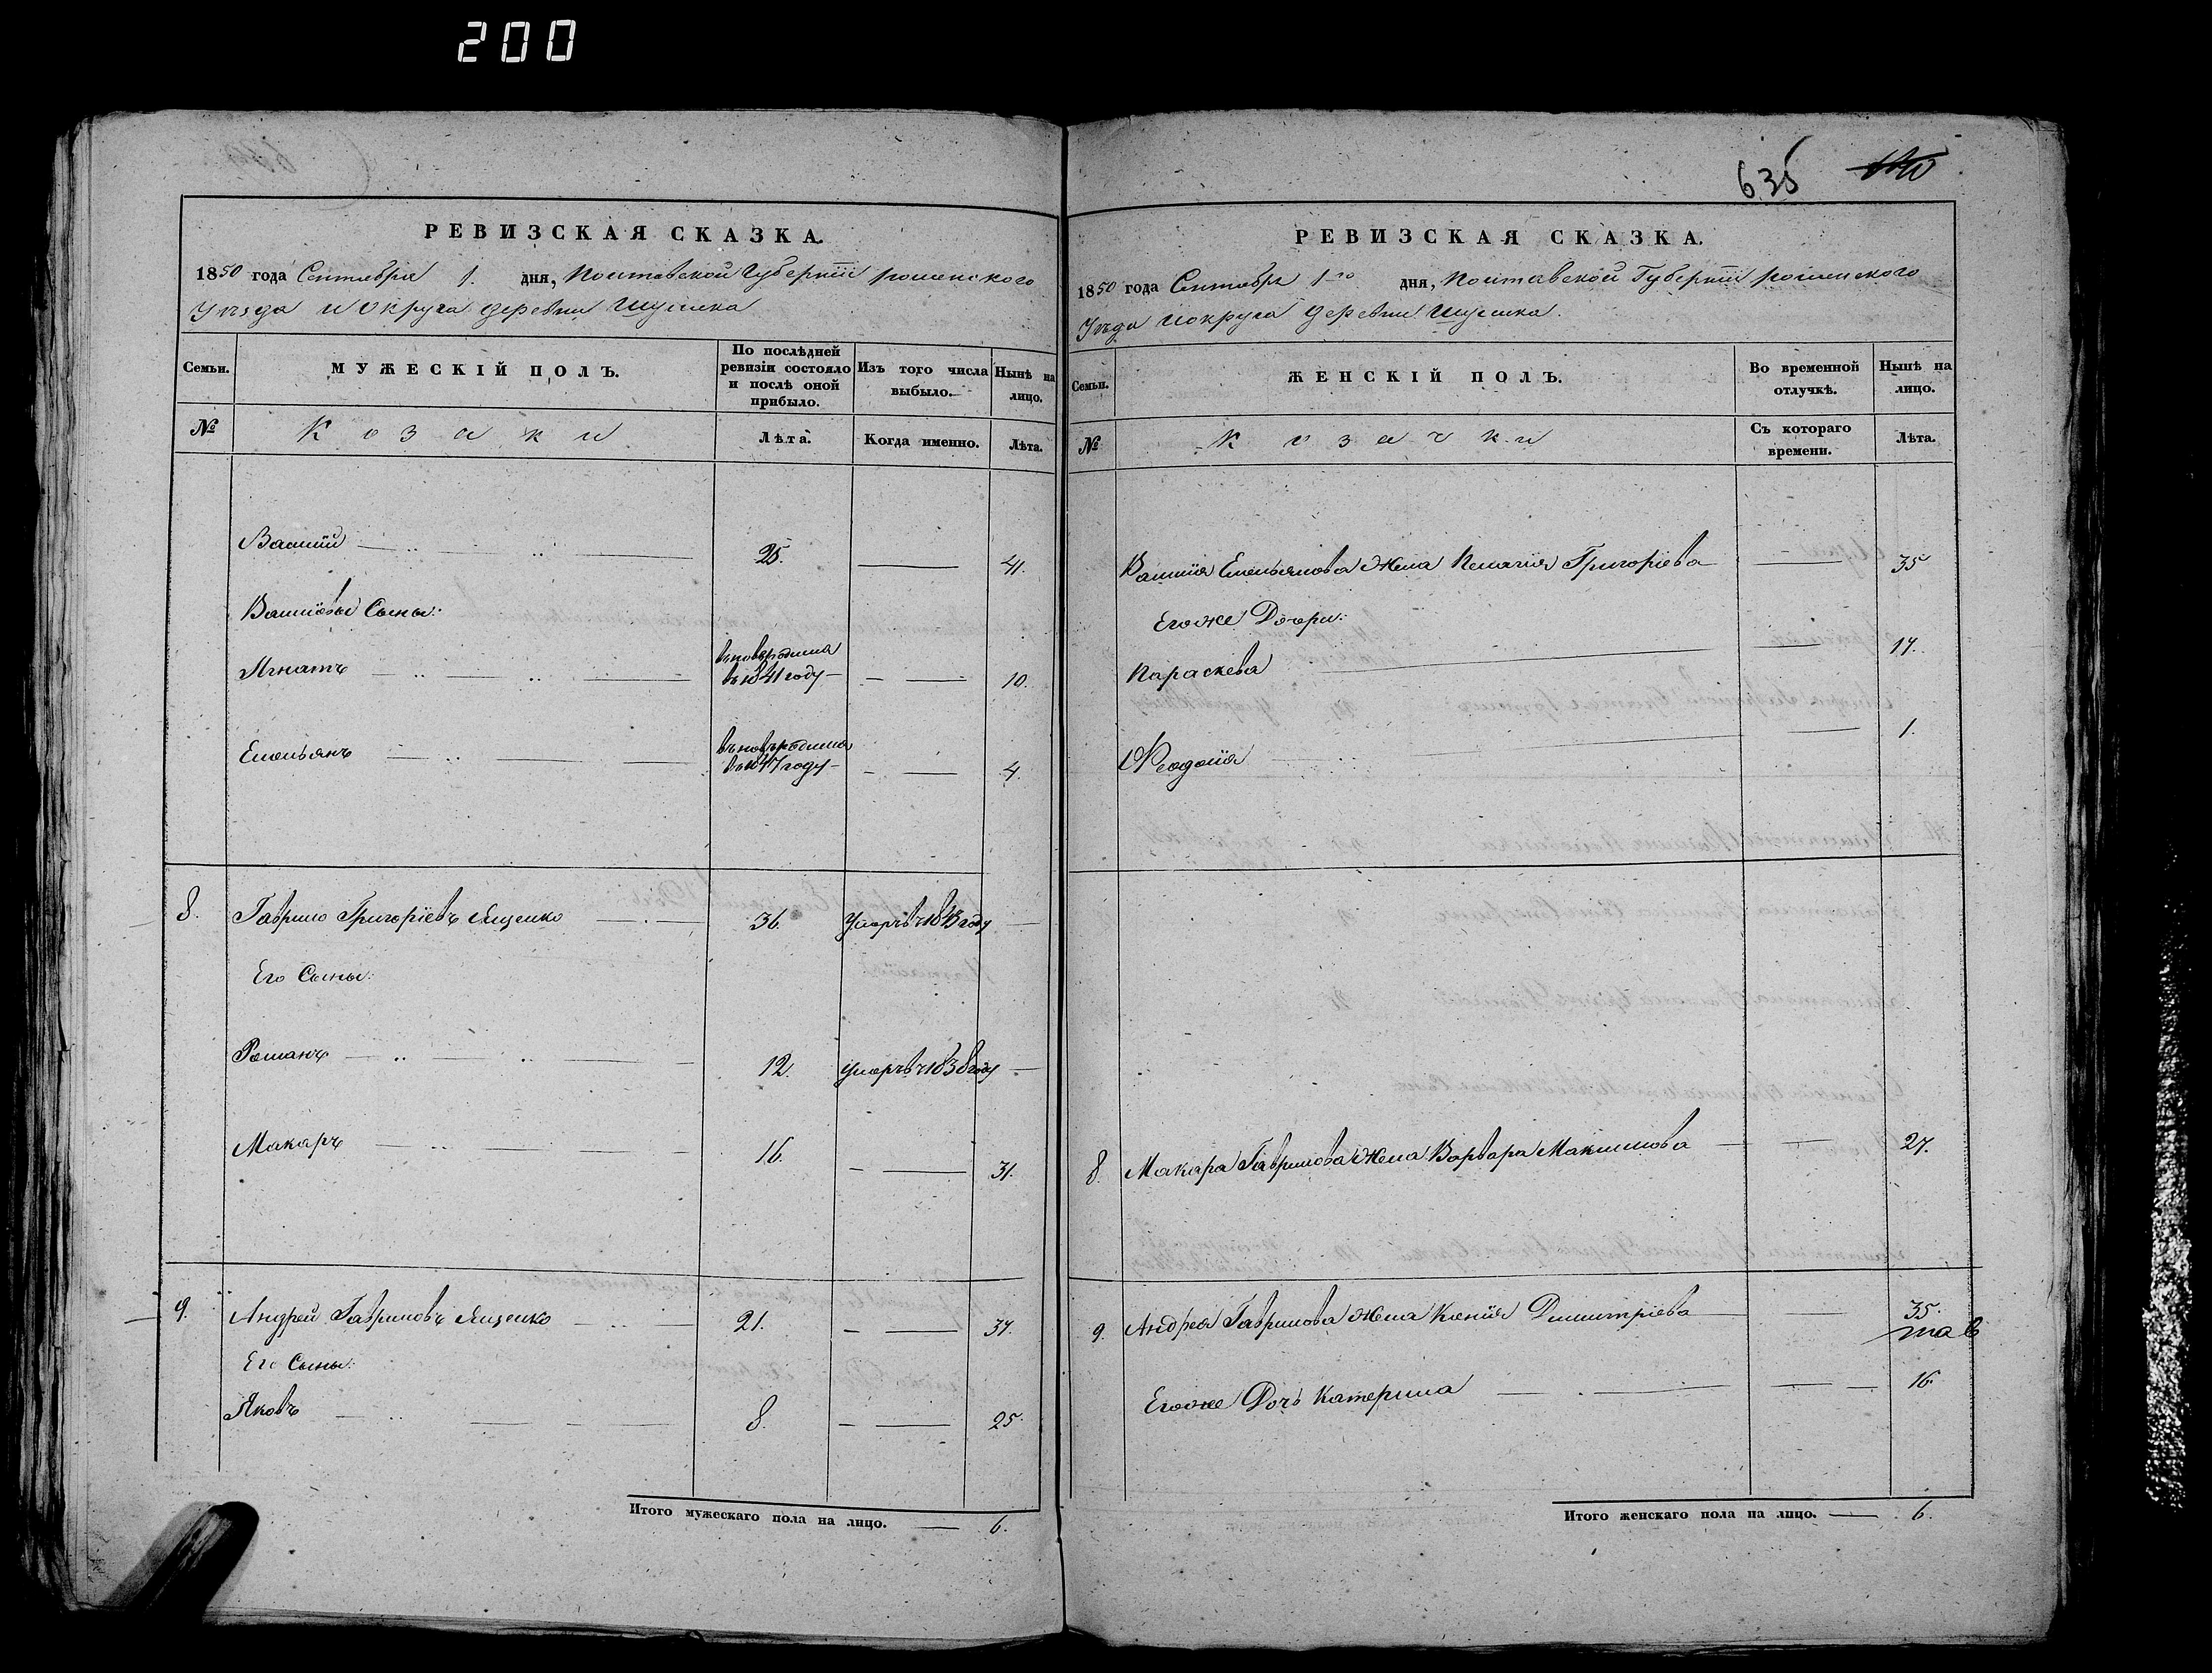 200
635
РЕВИЗСКАЯ СКАЗКА.
1850 года Сентября 1. дня, Полтавской Губерніи роменского
Уѣзда и Округа деревни Шумска
Семьи.
МУЖЕСКІЙ ПОЛЪ.
По послѣдней ревизіи состояло и послѣ оной прибыло.
Изъ того числа выбыло.
Нынѣ на лицо.
№
Козаки
Лѣта.
Когда именно.
Лѣта.
Василій 25. 41.
Василіевы Сыны:
Игнатъ вновьродился въ 1841 году 10.
Емельянъ вновьродился въ 1847 году 4.
8. Гаврило Григоріевъ Ященко 36. умеръ въ 1843 году
Его Сыны:
Романъ 12. умеръ въ 1838 году
Макаръ 16. 31.
9. Андрей Гавриловъ Ященко 21. 37.
Его Сыны:
Яковъ 8. 25.
Итого мужескаго пола на лицо. 6.
РЕВИЗСКАЯ СКАЗКА.
1850 года Сентября 1го дня, Полтавской Губерніи роменского
Уѣзда и округа деревни
Семьи.
ЖЕНСКІЙ ПОЛЪ.
Во временной отлучкѣ.
Нынѣ на лицо.
№
Козачки
Съ котораго времени.
Лѣта.
Василія Емельянова Жена Пелагія Григоріева 35
Егоже Дочери:
Параскева 17.
Феодосія 1.
8. Макара Гаврилова Жена Варвара Максимова 27.
9. Андрея Гаврилова Жена Ксенія Димитріева 35.
Егоже Дочь Катерина 16
Итого женскаго пола на лицо. 6.